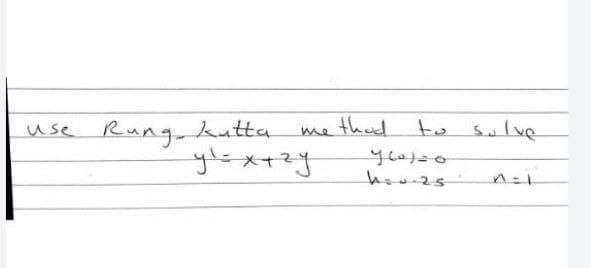 use Rung-kutta method to solve
y'=x+2y y(0)=0
h=0.25 n=1